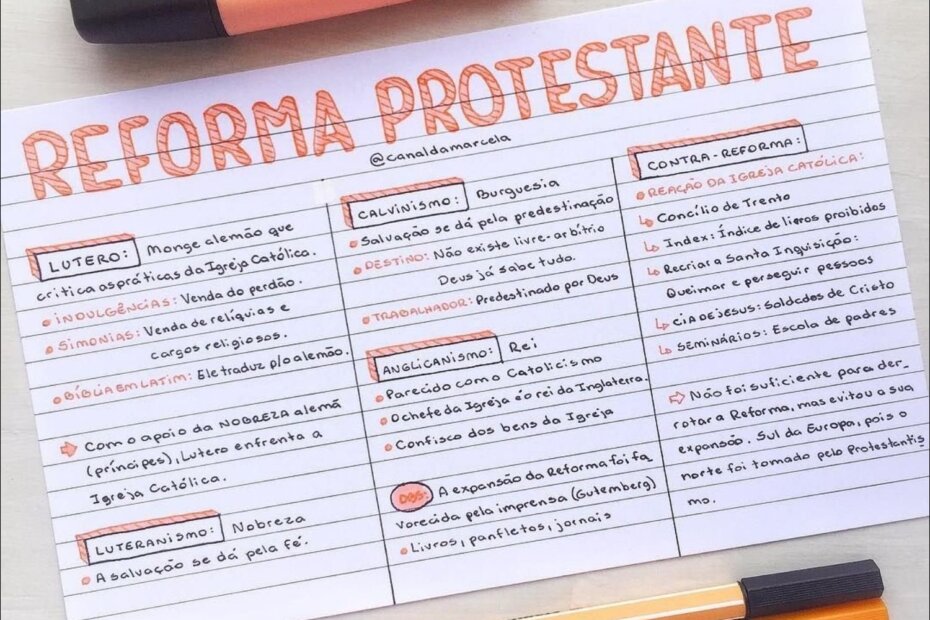 REFORMA PROTESTANTE
@canaldamarcela
LUTERO: Monge alemão que
critica as práticas da Igreja Católica.
INDULGÊNCIAS: Venda do perdão.
SIMONIAS: Venda de relíquias e
cargos religiosos.
BÍBLIA EM LATIM: Ele traduz p/o alemão.
Com o apoio da NOBREZA alemã
(príncipes), Lutero enfrenta a
Igreja Católica.
LUTERANISMO: Nobreza
A salvação se dá pela fé.
CALVINISMO: Burguesia
Salvação se dá pela predestinação
DESTINO: Não existe livre-arbítrio
Deus já sabe tudo.
TRABALHADOR: Predestinado por Deus
ANGLICANISMO: Rei
Parecido com o Catolicismo
O chefe da Igreja é o rei da Inglaterra.
Confisco dos bens da Igreja
OBS: A expansão da Reforma foi fa
vorecida pela imprensa (Gutemberg)
Livros, panfletos, jornais
CONTRA-REFORMA:
REAÇÃO DA IGREJA CATÓLICA:
Concílio de Trento
Index: Índice de livros proibidos
Recriar a Santa Inquisição:
Queimar e perseguir pessoas
CIA DE JESUS: Soldados de Cristo
SEMINÁRIOS: Escola de padres
Não foi suficiente para der_
rotar a Reforma, mas evitou a sua
expansão. Sul da Europa, pois o
norte foi tomado pelo Protestantis
mo.